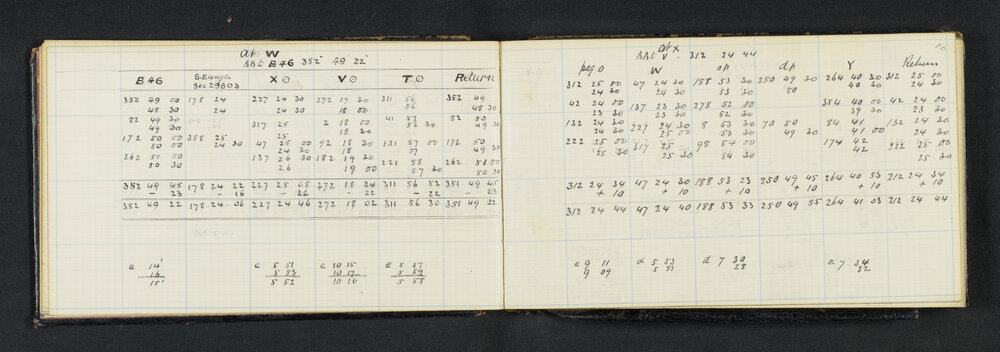 at W
BBt B46 352° 49' 22"
B46 S.E.angle Sec 29 D03 X⊙ V⊙ T⊙ Return
352 49 00 178 24 227 24 30 272 17 30 311 56 352 49
48 30 24 24 30 18 00 56 48 30
82 49 30 317 25 2 18 00 41 57 82 50
49 30 25 18 30 56 30 49 30
172 50 00 358 25 47 25 00 92 18 30 131 57 00 172 50
50 00 24 30 24 30 18 57 49 30
262 51 00 137 26 30 182 19 30 221 58 262 51 00
50 30 26 19 00 57 30 50 30
352 49 45 178 24 22 227 25 08 272 18 24 311 56 52 351 49 45
- 23 - 16 - 22 - 22 - 22 - 23
352 49 22 178 24 06 227 24 46 272 18 02 311 56 30 351 49 22
e 14' c 5 51 c 10 15 e 5 57
16 5 53 10 17 5 59
15' 5 52 10 16 5 58
10
at X
BBt V. 312 24 44
peg o W op dp Y Return
312 25 00 47 24 30 188 53 30 250 49 30 264 40 30 312 25 00
24 30 24 30 53 30 50 40 30 24 30
42 24 00 137 23 30 278 52 00 354 40 00 42 24 00
23 30 23 30 52 30 39 30 23 30
132 24 30 227 24 30 8 53 30 70 50 84 41 132 24 30
24 30 25 00 53 30 49 30 41 00 24
222 25 00 317 25 98 54 00 174 42 222 25 00
25 30 25 30 54 30 42 25 30
312 24 34 47 24 30 188 53 23 250 49 45 264 40 53 312 24 34
+ 10 + 10 + 10 + 10 + 10 + 10
312 24 44 47 24 40 188 53 33 250 49 55 264 41 03 312 24 44
e 9 11 d 5 53 d 7 30 e 7 34
9 09 5 51 28 32